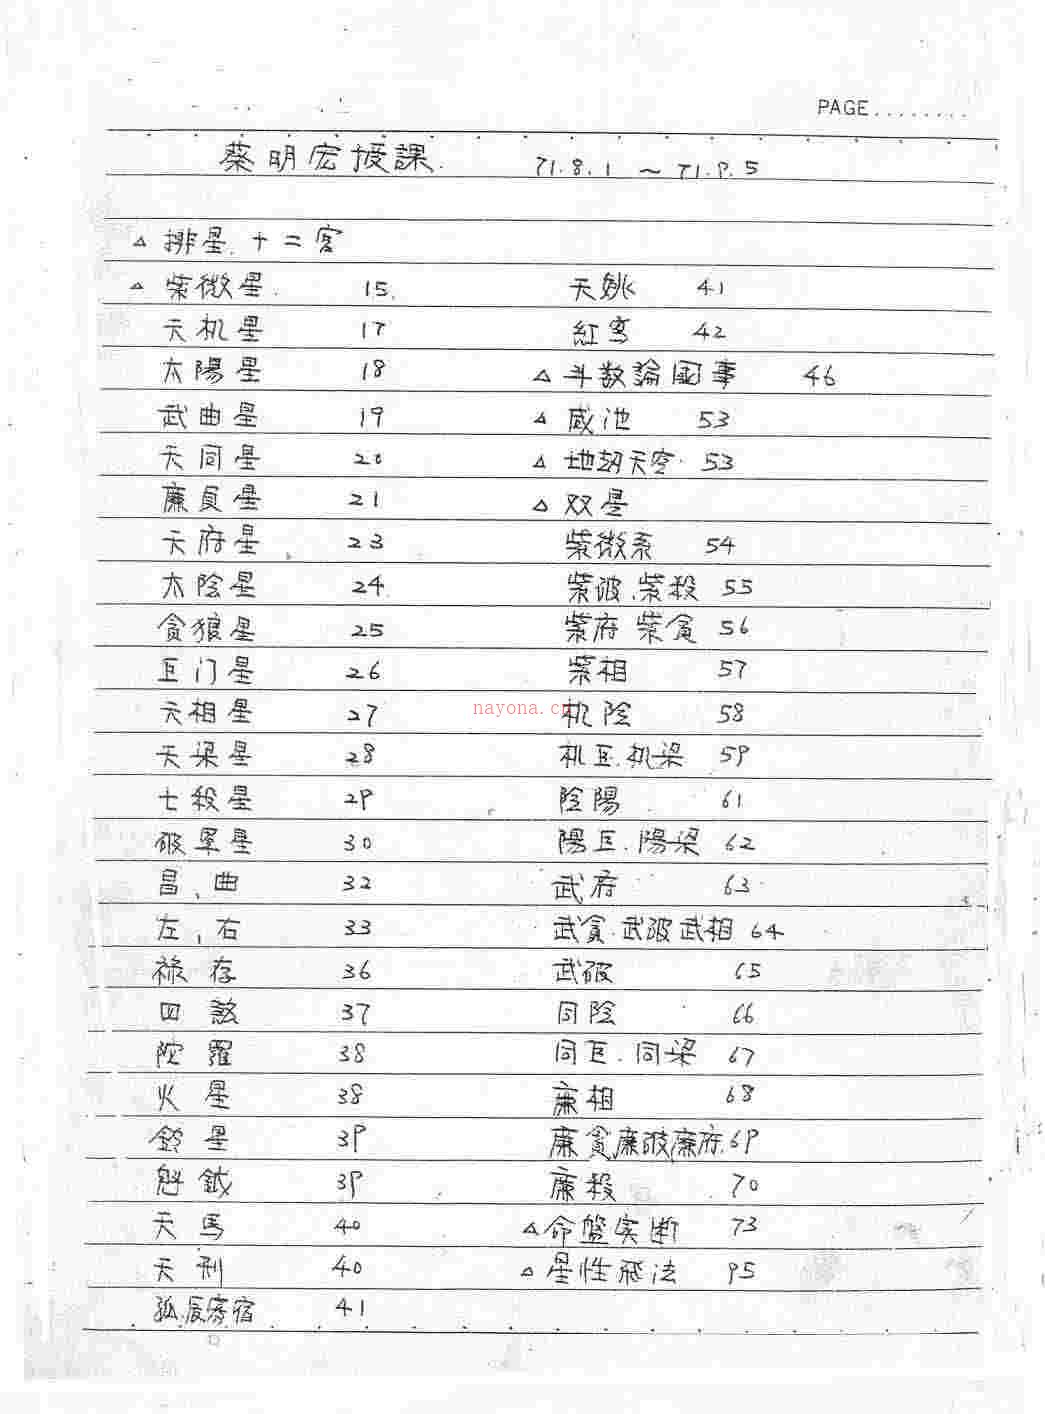 PAGE........
蔡明宏授課. 71.8.1 ~ 71.9.5
△ 排星. 十二宮
△ 紫微星. 15.
天机星 17
太陽星 18
武曲星 19
天同星 20
廉貞星 21
天府星 23
太陰星 24
貪狼星 25
巨门星 26
天相星 27
天梁星 28
七殺星 29
破軍星 30
昌、曲 32
左、右 33
祿存 36
四煞 37
陀羅 38
火星 38
鈴星 39
魁鉞 39
天馬 40
天刑 40
孤辰寡宿 41
天姚 41
紅鸾 42
△ 斗数論國事 46
△ 咸池 53
△ 地劫天空. 53
△ 双星
紫微系 54
紫破、紫殺 55
紫府 紫貪 56
紫相 57
机陰 58
机巨.机梁 59
陰陽 61
陽巨.陽梁 62
武府 63
武貪.武破武相 64
武破 65
同陰 66
同巨.同梁 67
廉相 68
廉貪廉破廉府. 69
廉殺 70
△ 命盤实断 73
△ 星性飛法 95
nayona.cn